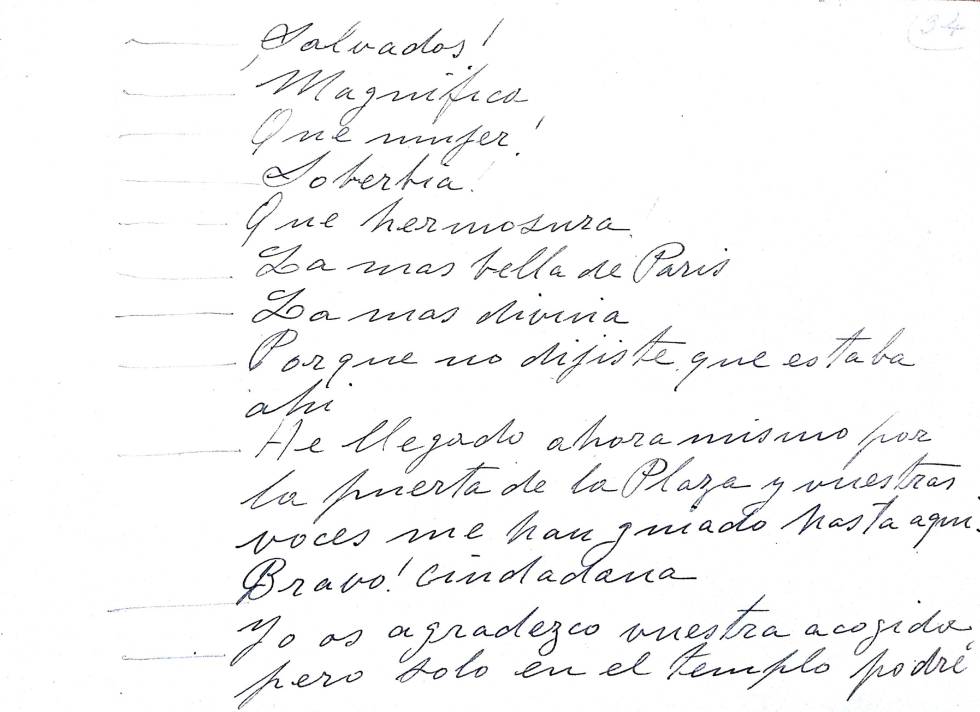 34
¡Salvados!
Magnífica
Que mujer!
Soberbia!
Que hermosura!
La mas bella de Paris
La mas divina
Porque no dijiste que estaba
ahi
He llegado ahora mismo por
la puerta de la Plaza y vuestras
voces me han guiado hasta aqui.
Bravo! ciudadana
Yo os agradezco vuestra acogida
pero solo en el templo podré